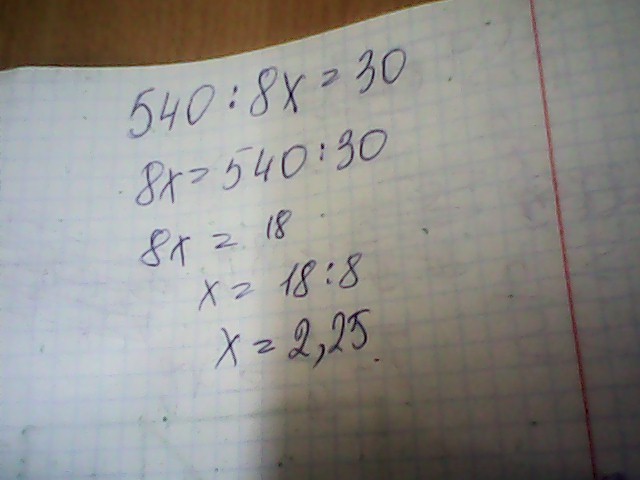 540 : 8x = 30
8x = 540 : 30
8x = 18
x = 18 : 8
x = 2,25